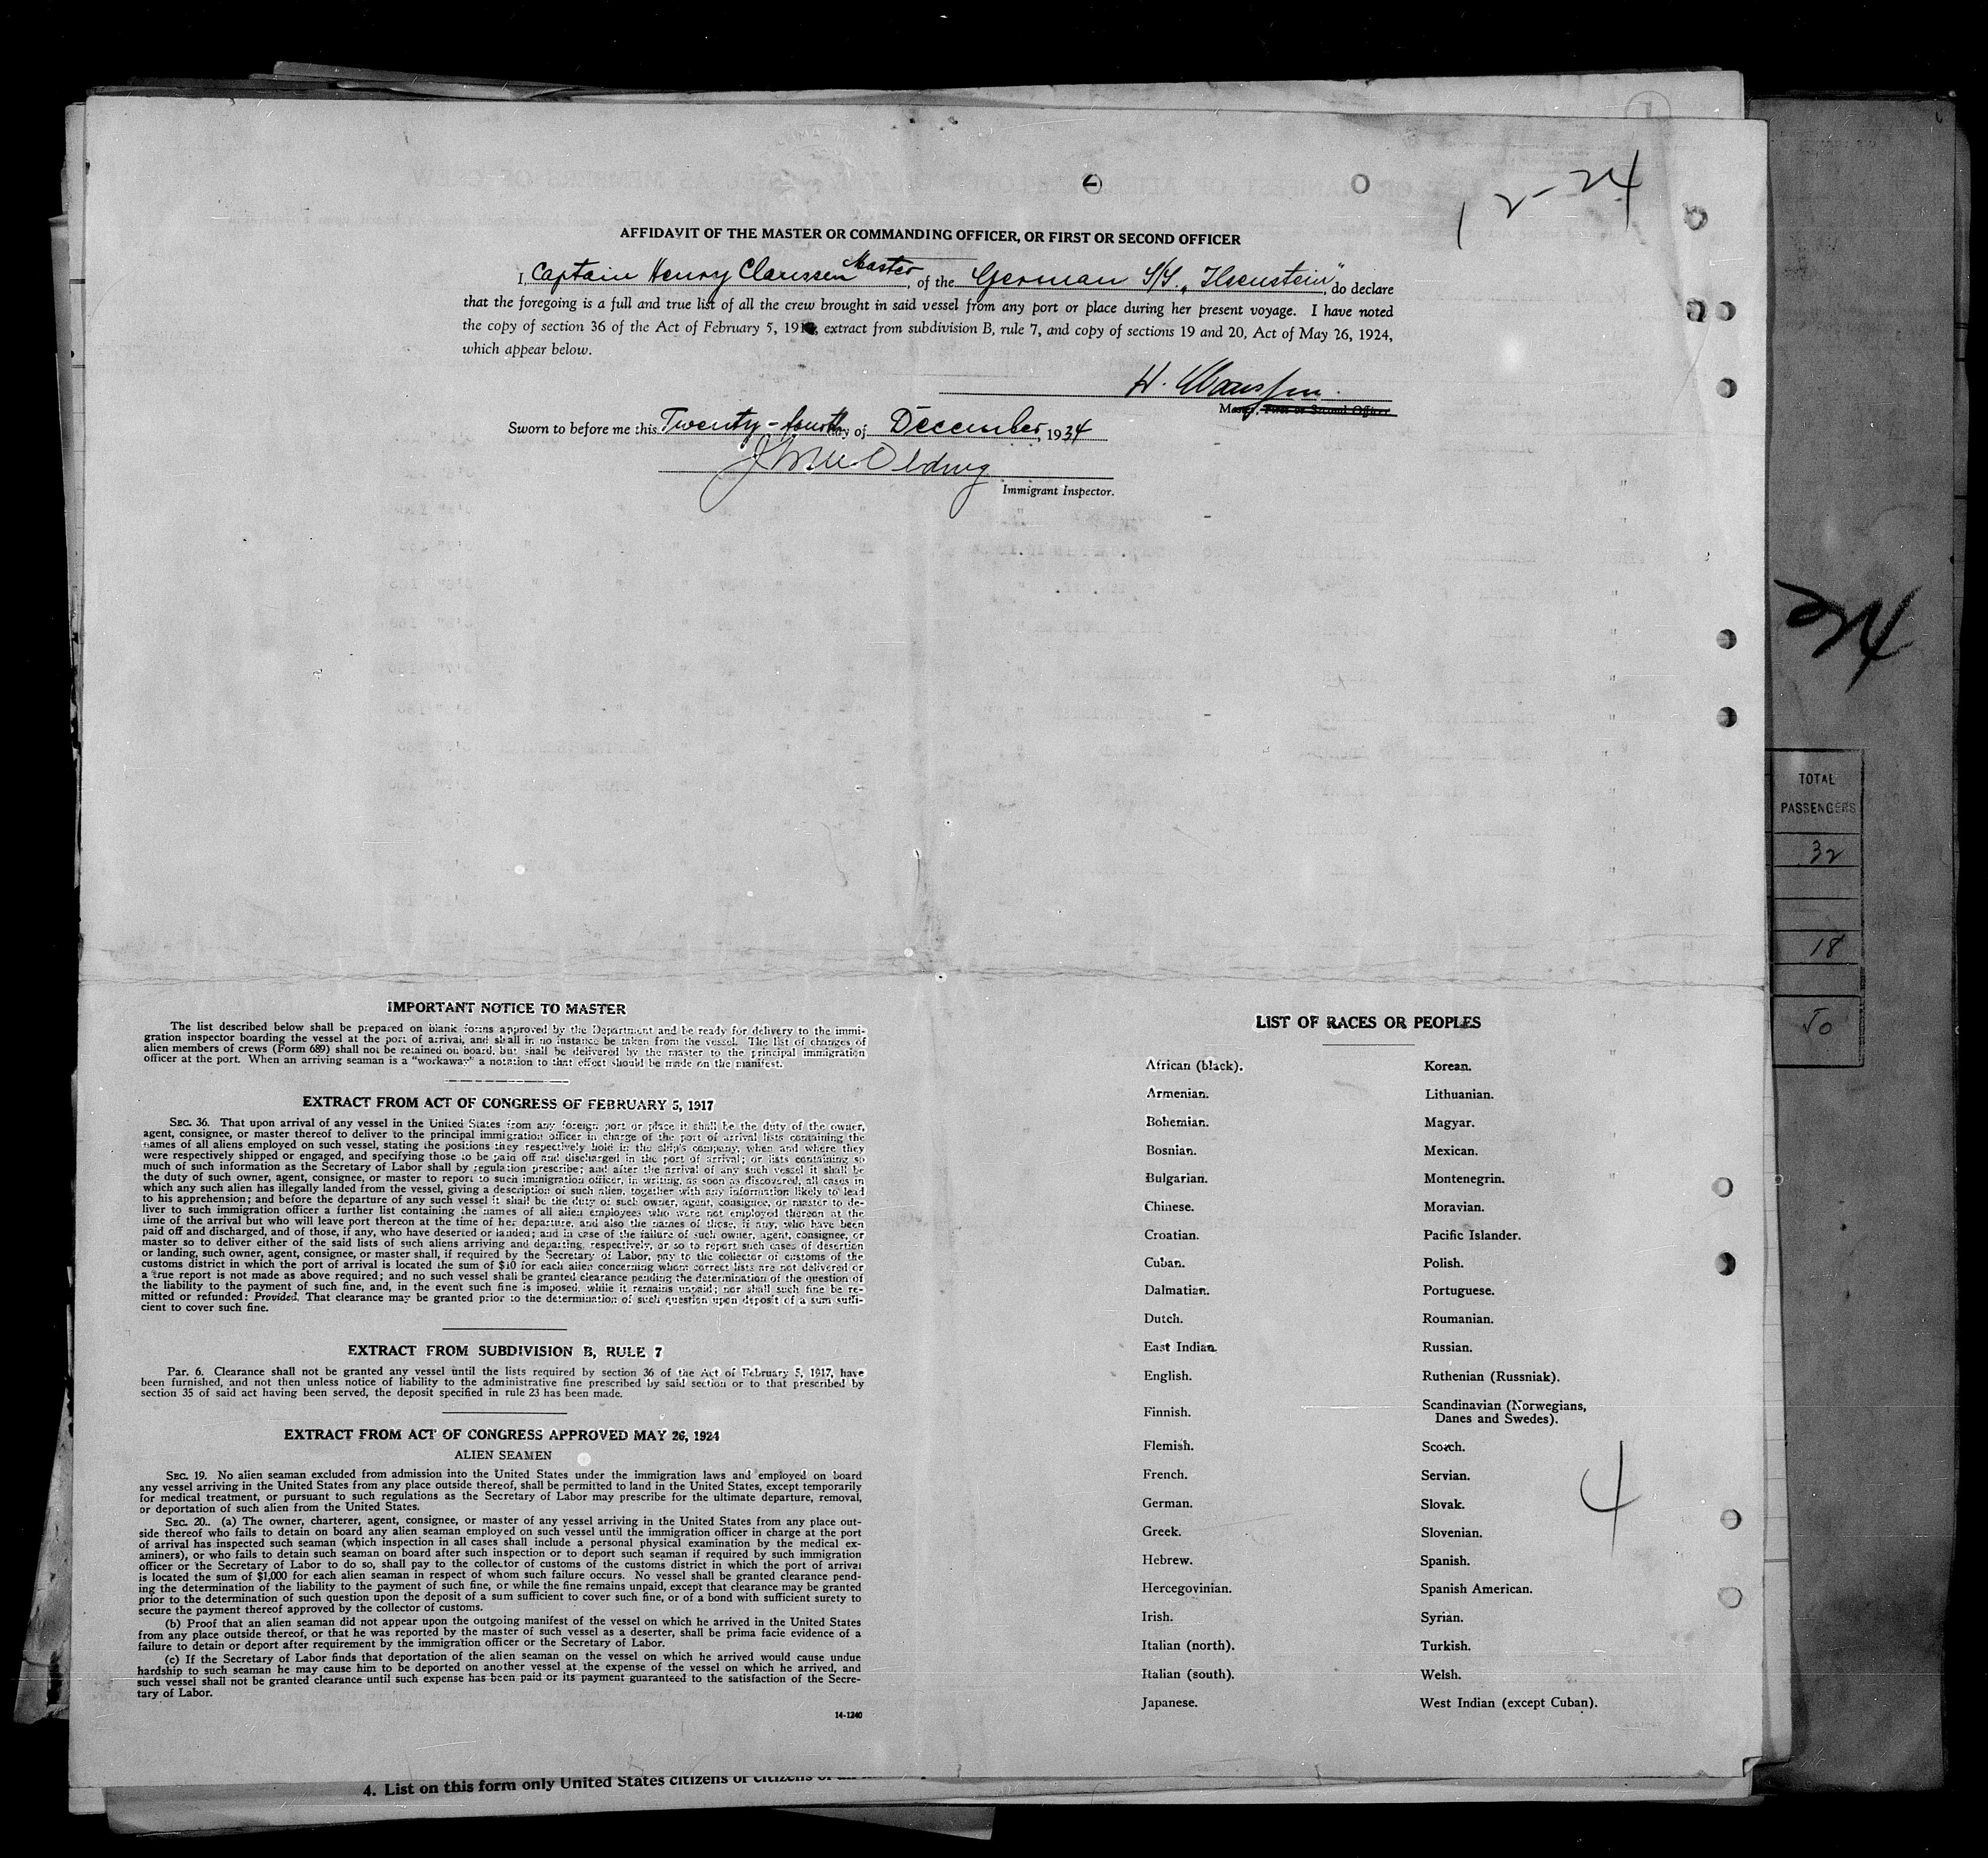 12-24
AFFIDAVIT OF THE MASTER OR COMMANDING OFFICER, OR FIRST OR SECOND OFFICER
I, Captain Henry Claussen Master, of the German S/S. „Ilsenstein", do declare
that the foregoing is a full and true list of all the crew brought in said vessel from any port or place during her present voyage. I have noted
the copy of section 36 of the Act of February 5, 191 , extract from subdivision B, rule 7, and copy of sections 19 and 20, Act of May 26, 1924,
which appear below.
H. Claussen.
Master, First or Second Officer.
Sworn to before me this Twenty-fourth day of December, 1934
Immigrant Inspector.
24
TOTAL
PASSENGERS
32
18
50
IMPORTANT NOTICE TO MASTER
The list described below shall be prepared on blank forms approved by the Department and be ready for delivery to the immi-
gration inspector boarding the vessel at the port of arrival, and shall in no instance be taken from the vessel. The list of changes of
alien members of crews (Form 689) shall not be retained on board, but shall be delivered by the master to the principal immigration
officer at the port. When an arriving seaman is a "workaway" a notation to that effect should be made on the manifest.
EXTRACT FROM ACT OF CONGRESS OF FEBRUARY 5, 1917
SEC. 36. That upon arrival of any vessel in the United States from any foreign port or place it shall be the duty of the owner,
agent, consignee, or master thereof to deliver to the principal immigration officer in charge of the port of arrival lists containing the
names of all aliens employed on such vessel, stating the positions they respectively hold in the ship's company, when and where they
were respectively shipped or engaged, and specifying those to be paid off and discharged in the port of arrival; or lists containing so
much of such information as the Secretary of Labor shall by regulation prescribe; and after the arrival of any such vessel it shall be
the duty of such owner, agent, consignee, or master to report to such immigration officer, in writing, as soon as discovered, all cases in
which any such alien has illegally landed from the vessel, giving a description of such alien, together with any information likely to lead
to his apprehension; and before the departure of any such vessel it shall be the duty of such owner, agent, consignee, or master to de-
liver to such immigration officer a further list containing the names of all alien employees who were not employed thereon at the
time of the arrival but who will leave port thereon at the time of her departure, and also the names of those, if any, who have been
paid off and discharged, and of those, if any, who have deserted or landed; and in case of the failure of such owner, agent, consignee, or
master so to deliver either of the said lists of such aliens arriving and departing, respectively, or so to report such cases of desertion
or landing, such owner, agent, consignee, or master shall, if required by the Secretary of Labor, pay to the collector of customs of the
customs district in which the port of arrival is located the sum of $10 for each alien concerning whom correct lists are not delivered or
a true report is not made as above required; and no such vessel shall be granted clearance pending the determination of the question of
the liability to the payment of such fine, and, in the event such fine is imposed, while it remains unpaid; nor shall such fine be re-
mitted or refunded: Provided, That clearance may be granted prior to the determination of such question upon deposit of a sum suffi-
cient to cover such fine.
EXTRACT FROM SUBDIVISION B, RULE 7
Par. 6. Clearance shall not be granted any vessel until the lists required by section 36 of the Act of February 5, 1917, have
been furnished, and not then unless notice of liability to the administrative fine prescribed by said section or to that prescribed by
section 35 of said act having been served, the deposit specified in rule 23 has been made.
EXTRACT FROM ACT OF CONGRESS APPROVED MAY 26, 1924
ALIEN SEAMEN
SEC. 19. No alien seaman excluded from admission into the United States under the immigration laws and employed on board
any vessel arriving in the United States from any place outside thereof, shall be permitted to land in the United States, except temporarily
for medical treatment, or pursuant to such regulations as the Secretary of Labor may prescribe for the ultimate departure, removal,
or deportation of such alien from the United States.
SEC. 20.. (a) The owner, charterer, agent, consignee, or master of any vessel arriving in the United States from any place out-
side thereof who fails to detain on board any alien seaman employed on such vessel until the immigration officer in charge at the port
of arrival has inspected such seaman (which inspection in all cases shall include a personal physical examination by the medical ex-
aminers), or who fails to detain such seaman on board after such inspection or to deport such seaman if required by such immigration
officer or the Secretary of Labor to do so, shall pay to the collector of customs of the customs district in which the port of arrival
is located the sum of $1,000 for each alien seaman in respect of whom such failure occurs. No vessel shall be granted clearance pend-
ing the determination of the liability to the payment of such fine, or while the fine remains unpaid, except that clearance may be granted
prior to the determination of such question upon the deposit of a sum sufficient to cover such fine, or of a bond with sufficient surety to
secure the payment thereof approved by the collector of customs.
(b) Proof that an alien seaman did not appear upon the outgoing manifest of the vessel on which he arrived in the United States
from any place outside thereof, or that he was reported by the master of such vessel as a deserter, shall be prima facie evidence of a
failure to detain or deport after requirement by the immigration officer or the Secretary of Labor.
(c) If the Secretary of Labor finds that deportation of the alien seaman on the vessel on which he arrived would cause undue
hardship to such seaman he may cause him to be deported on another vessel at the expense of the vessel on which he arrived, and
such vessel shall not be granted clearance until such expense has been paid or its payment guaranteed to the satisfaction of the Secre-
tary of Labor.
14-1240
LIST OF RACES OR PEOPLES
African (black).
Armenian.
Bohemian.
Bosnian.
Bulgarian.
Chinese.
Croatian.
Cuban.
Dalmatian.
Dutch.
East Indian.
English.
Finnish.
Flemish.
French.
German.
Greek.
Hebrew.
Hercegovinian.
Irish.
Italian (north).
Italian (south).
Japanese.
Korean.
Lithuanian.
Magyar.
Mexican.
Montenegrin.
Moravian.
Pacific Islander.
Polish.
Portuguese.
Roumanian.
Russian.
Ruthenian (Russniak).
Scandinavian (Norwegians,
Danes and Swedes).
Scotch.
Servian.
Slovak.
Slovenian.
Spanish.
Spanish American.
Syrian.
Turkish.
Welsh.
West Indian (except Cuban).
4
4. List on this form only United States citizens or citizens